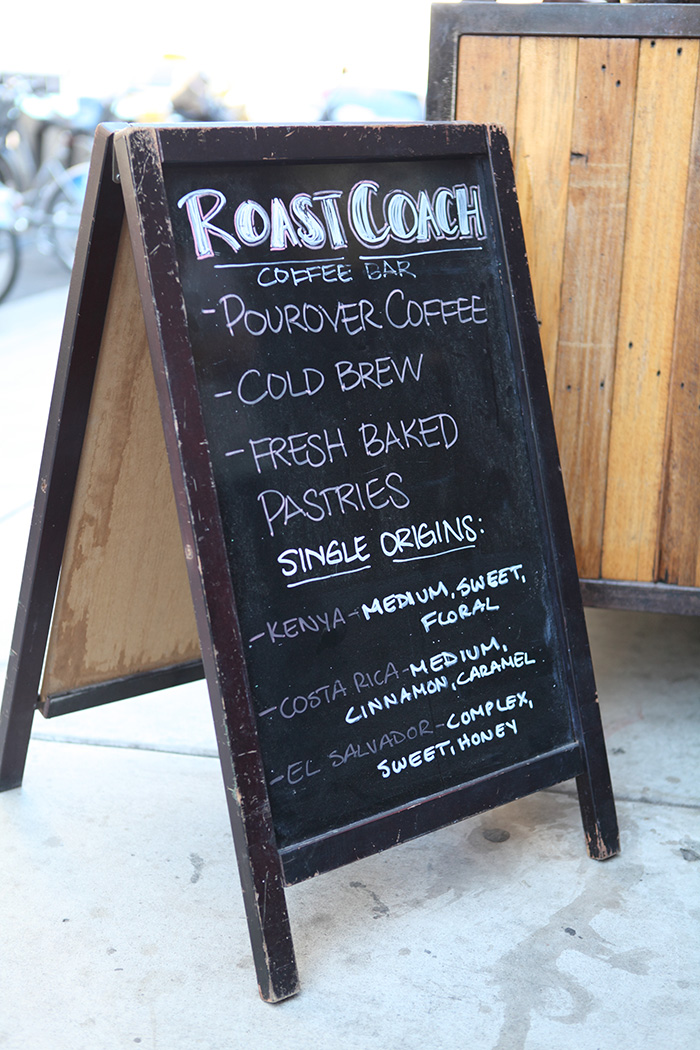 ROAST COACH
COFFEE BAR
-POUROVER COFFEE
-COLD BREW
-FRESH BAKED
PASTRIES
SINGLE ORIGINS:
-KENYA-MEDIUM, SWEET,
FLORAL
-COSTA RICA-MEDIUM,
CINNAMON, CARAMEL
-EL SALVADOR-COMPLEX,
SWEET, HONEY